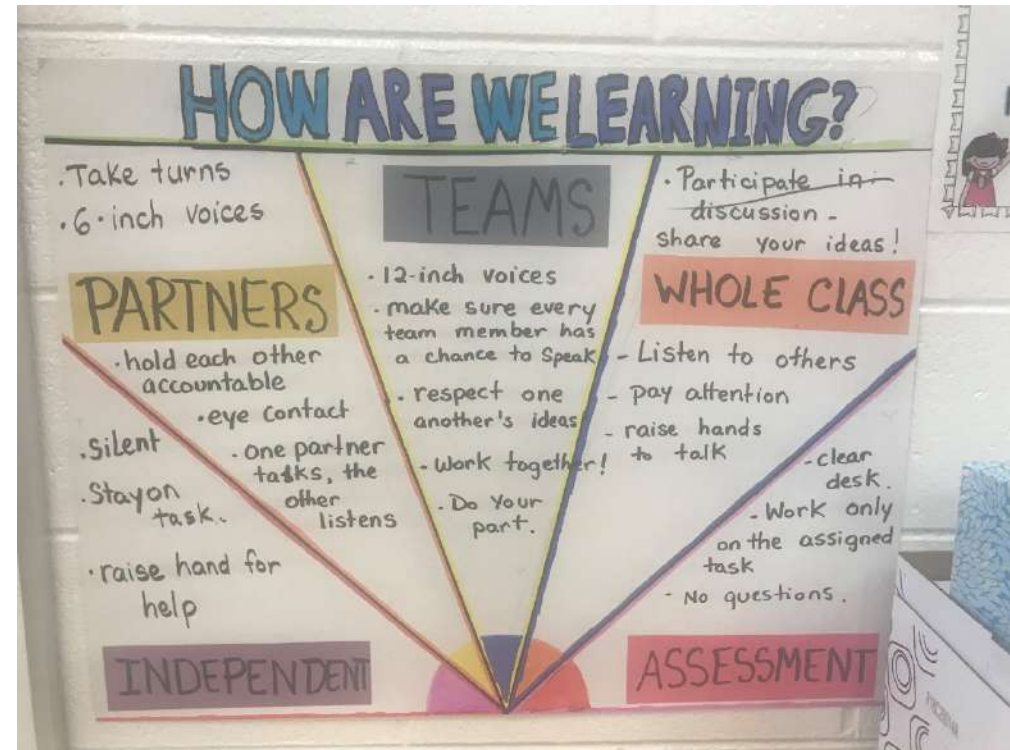 HOW ARE WE LEARNING?
· Take turns
· 6-inch voices
PARTNERS
· hold each other
accountable
· eye contact
· one partner
talks, the
other
listens
TEAMS
· 12-inch voices
· make sure every
team member has
a chance to Speak
· respect one
another's ideas
· Work together!
· Do Your
part.
· Participate in
discussion -
share your ideas!
WHOLE CLASS
- Listen to others
- pay attention
- raise hands
to talk
· Silent
· Stay on
task.
· raise hand for
help
INDEPENDENT
- clear
desk.
- Work only
on the assigned
task
- No questions.
ASSESSMENT